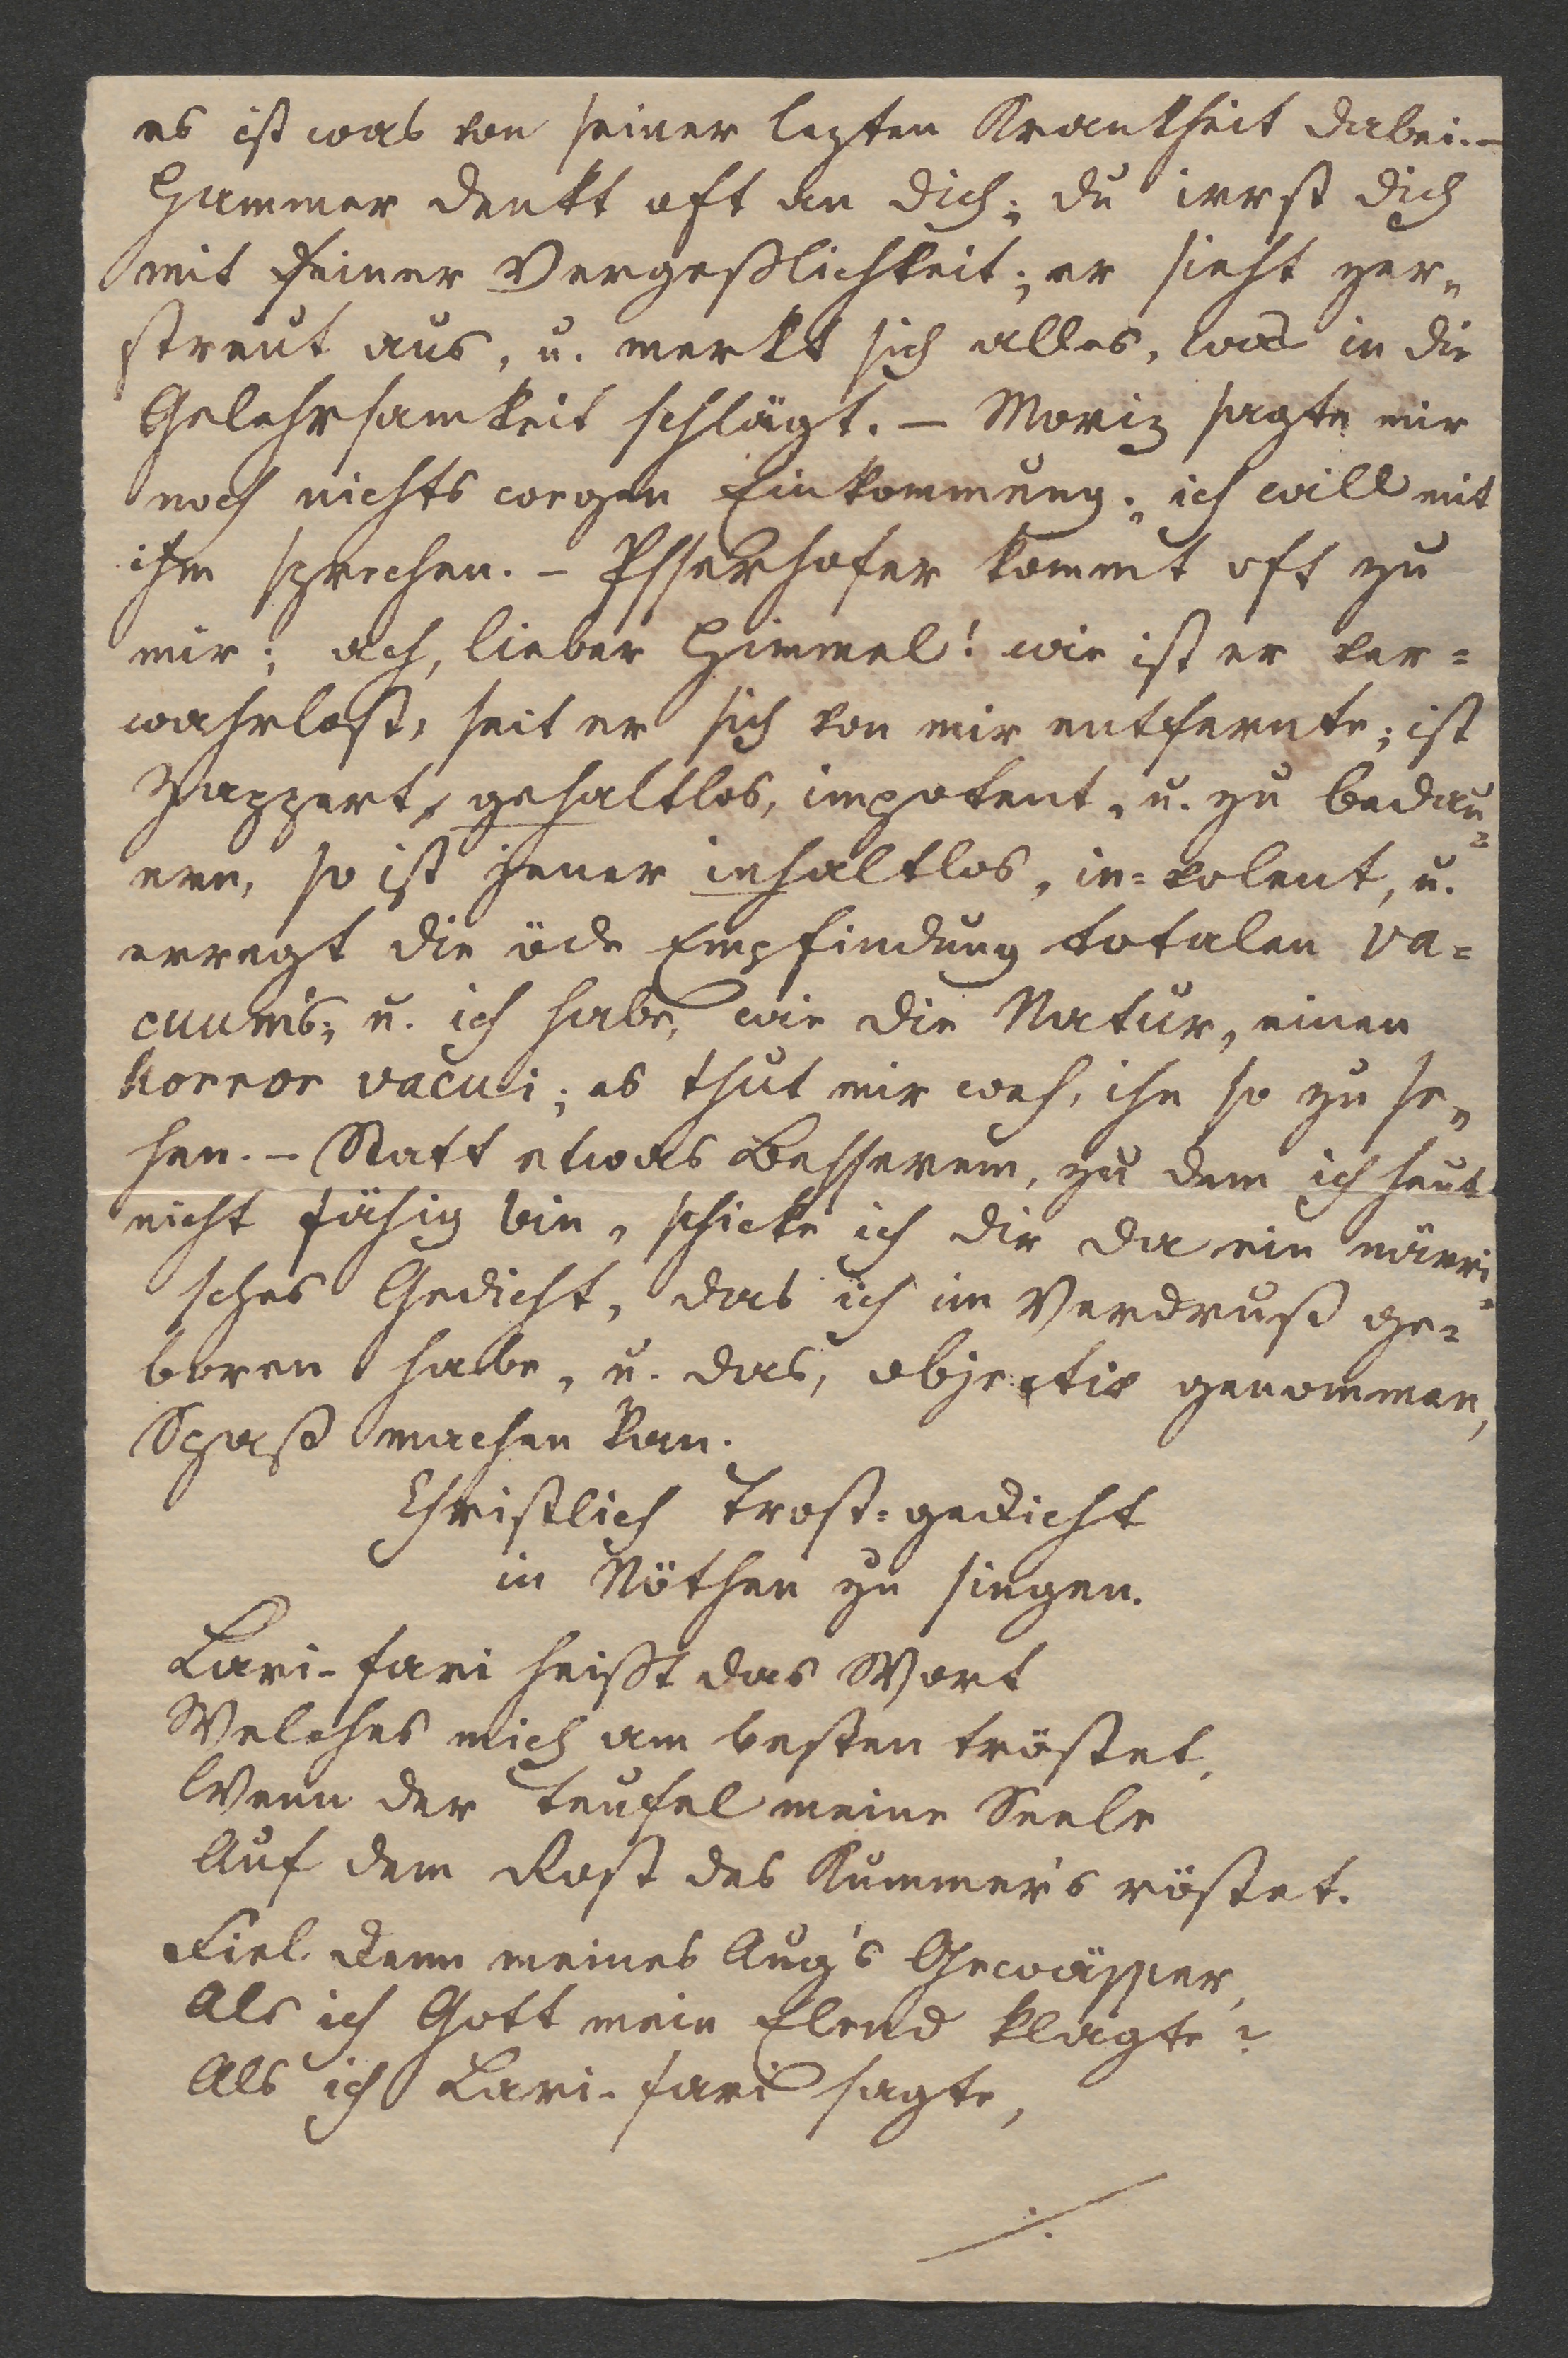 es ist was von seiner lezten Krankheit dabei. –
Hammer denkt oft an dich; du irrst dich
mit seiner Vergeßlichkeit; er sieht zer=
streut aus, u. merkt sich alles, was in die
Gelehrsamkeit schlägt. – Moriz sagte mir
noch nichts wegen Einkommung; ich will mit
ihm sprechen. – Pfferhofer kommt oft zu
mir; ach, lieber Himmel! wie ist er ver=
wahrlost, seit er sich von mir entfernte; ist
Zappert, gehaltlos, impotent, u. zu bedau=
ern, so ist jener inhaltlos, in=volent, u.
erregt die öde Empfindung totalen va=
cuums; u. ich habe, wie die Natur, einen
horror vacui; es thut mir weh, ihn so zu se=
hen. – Statt etwas Besserem, zu dem ich heut
nicht fähig bin, schicke ich dir da ein närri=
sches Gedicht, das ich im Verdruß ge=
boren habe, u. das, objectiv genommen,
Spaß machen kan.
Christlich Trost=gedicht
in Nöthen zu singen.
Lari-fari heißt das Wort
Welches mich am besten tröstet,
Wenn der Teufel meine Seele
Auf dem Rost des Kummer's röstet.
Fiel denn meines Aug's Gewässer,
Als ich Gott mein Elend klagte?
Als ich Lari-fari sagte,
./.